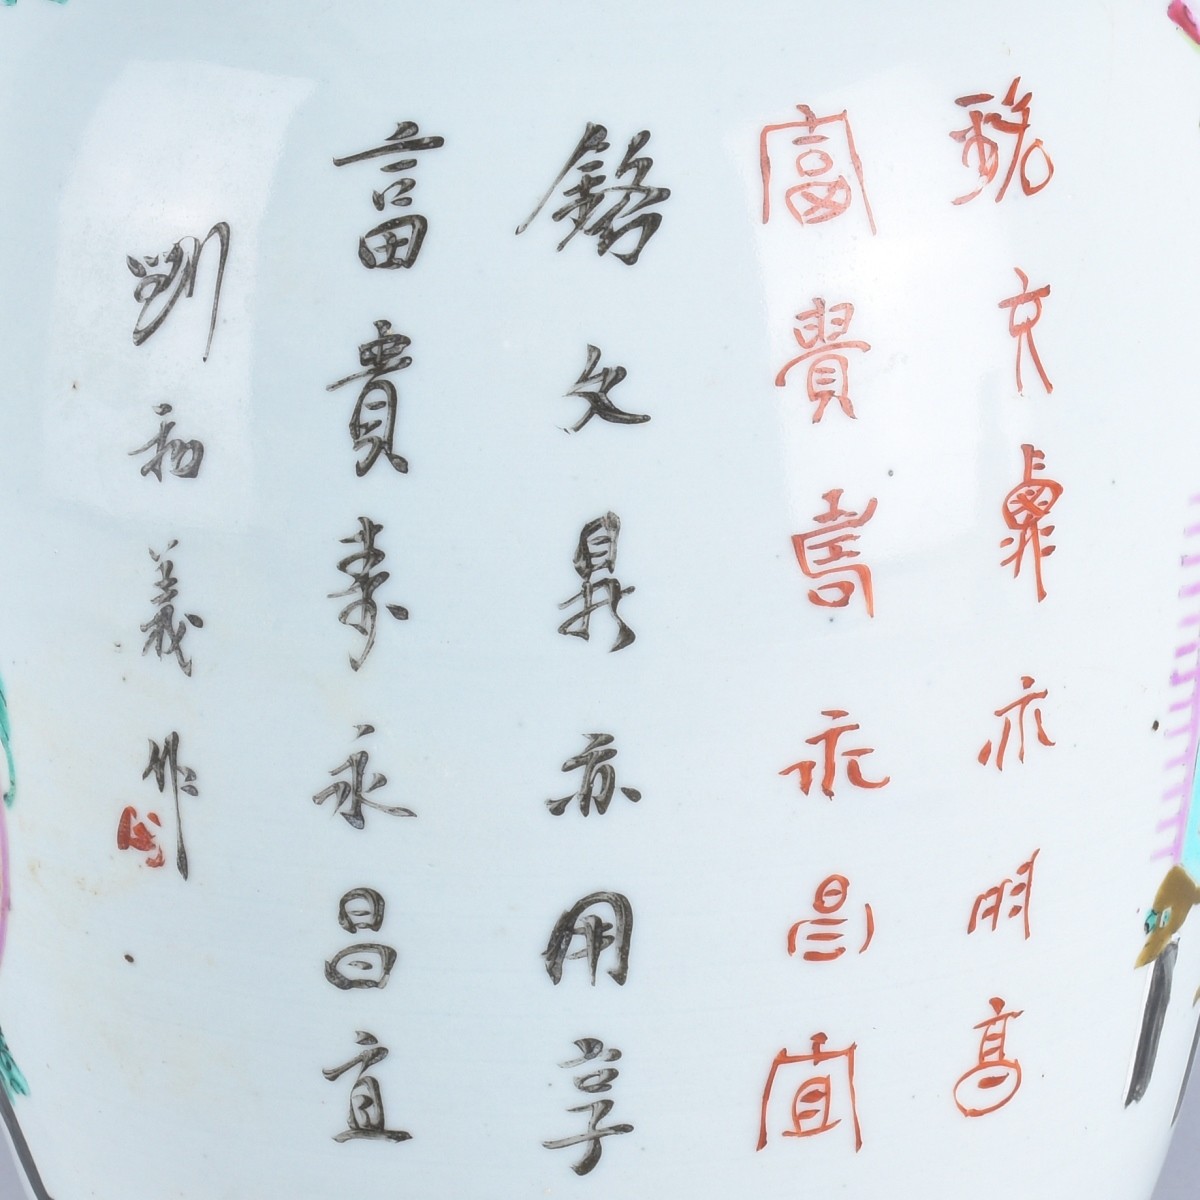 銘文鼎亦用享
富貴壽永昌宜
銘文鼎亦用享
富貴壽永昌宜
劉和義作